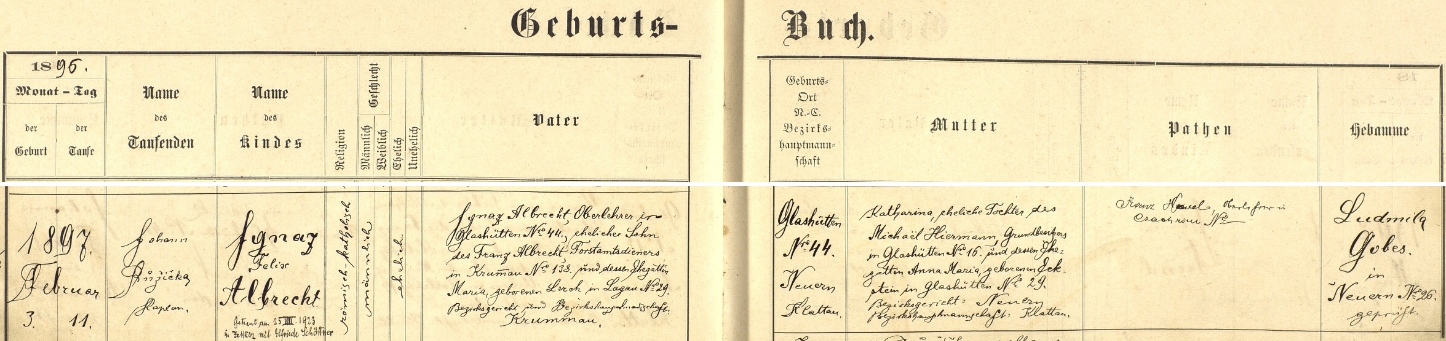 Geburts-Buch.
1896.
Monat – Tag
der Geburt
der Taufe
Name des Taufenden
Name des Kindes
Religion
Geschlecht
Männlich
Weiblich
Ehelich
Unehelich
Vater
Geburts-
Ort
N.-C.
Bezirks-
hauptmann-
schaft
Mutter
Pathen
Hebamme
1897.
Februar
3. 11.
Johann
Růžička
Kaplan.
Ignaz
Felix
Albrecht
Getraut am 25 VIII 1923
in mit Elfriede
römisch-katholisch
männlich
ehelich
Ignaz Albrecht Oberlehrer in
Glashütten No 44, ehelicher Sohn
des Franz Albrecht Forstamtsdieners
in Krumau No 138. und dessen Ehegattin
Maria, geborenen Lerch in Lagau No 29.
Bezirksgericht und Bezirkshauptmannschaft:
Krummau.
Glashütten
No 44.
Neuern
Klattau.
Katharina, eheliche Tochter des
Michael Hiermann Grundbesitzers
in Glashütten No 16. und dessen Ehe-
gattin Anna Maria, geborenen Eck-
stein in Glashütten No 29.
Bezirksgericht: Neuern
Bezirkshauptmannschaft: Klattau.
Franz Oberlehrer in
Czachrau No
Ludmila
Gobes.
in
Neuern No 26.
geprüft.